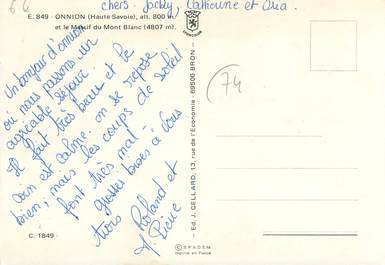 66
chers Jacky, Catherine et Aria.
E. 849 - ONNION (Haute-Savoie), alt. 800 m
et le Massif du Mont Blanc (4807 m).
Un bonjour d'onnion
où nous passons un
agréable séjour.
Il fait très beau et le
coin est calme. on se repose
bien; mais les coups de soleil
font très mal.
grosses bises à vous
trois
Roland et
C. 1849
SPADEM
Imprimé en France
Ed. J. CELLARD, 13, rue de l'Économie - 69500 BRON
74